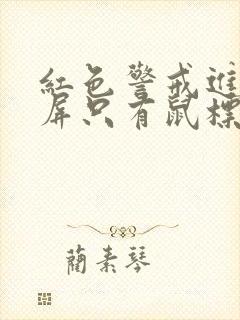 紅色警戒進
屏只有鼠標
蘭素琴